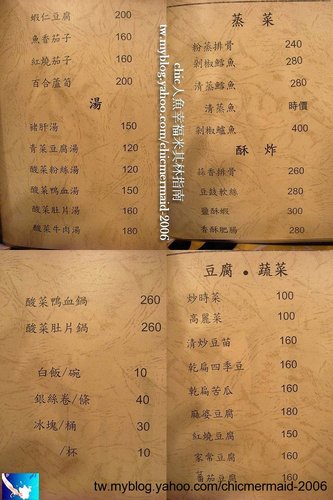 蝦仁豆腐 200
魚香茄子 160
紅燒茄子 160
百合蘆筍 200
湯
豬肝湯 150
青菜豆腐湯 120
酸菜粉絲湯 120
酸菜鴨血湯 150
酸菜肚片湯 160
酸菜牛肉湯 180
chic人魚幸福米其林指南
tw.myblog.yahoo.com/chicmermaid-2006
蒸菜
粉蒸排骨 240
剁椒鱈魚 280
清蒸鱈魚 280
清蒸魚 時價
剁椒鱸魚 400
酥炸
蒜香排骨 260
豆豉軟絲 280
鹽酥蝦 300
香酥肥腸 280
酸菜鴨血鍋 260
酸菜肚片鍋 260
白飯/碗 10
銀絲卷/條 40
冰塊/桶 30
/杯 10
豆腐·蔬菜
炒時菜 100
高麗菜 100
清炒豆苗 160
乾扁四季豆 160
乾扁苦瓜 160
麻婆豆腐 160
紅燒豆腐 150
家常豆腐 160
蕃茄豆腐 160
tw.myblog.yahoo.com/chicmermaid-2006